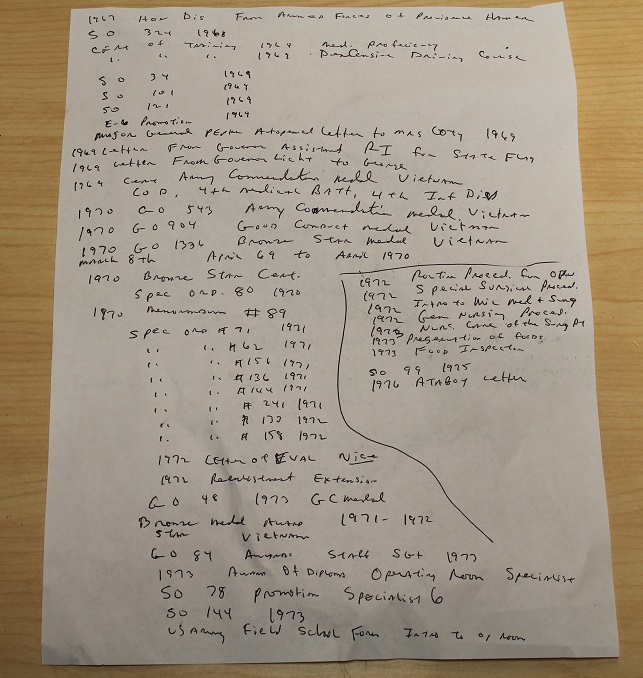 1967 Hon Dis From Armed Forces of
SO 324 1968
of Training 1969 Med. Proficiency
" " " 1969 Defensive Driving Course
SO 34 1969
SO 101 1969
SO 121 1969
E-6 Promotion 1969
Major General Autopened Letter to Mrs Coty 1969
1969 Letter From Govenor Assistant RI for State Flag
1969 Letter From Govenor Licht to George
1969 Cert Army Commendation Medal Vietnam
Co D, 4th Medical Batt, 4th Inf Div
1970 GO 543 Army Commendation medal, Vietnam
1970 GO 904 Good Conduct medal Vietnam
1970 GO 1336 Bronze Star Medal Vietnam
March 8th April 69 to April 1970
1970 Bronze Star Cert.
Spec Ord. 80 1970
1970 Memorandum # 89
Spec Ord # 71 1971
" " # 62 1971
" " # 156 1971
" " # 136 1971
" " # 144 1971
" " # 241 1971
" " # 133 1972
" " # 158 1972
1972 Letter of EVAL Nice
1972 Reenlistment Extension
GO 48 1973 GC medal
Bronze medal Award 1971-1972
Star Vietnam
GO 84 Awards Staff Sgt 1973
1973 Award Of Diploma Operating Room Specialist
SO 78 Promotion Specialist 6
SO 144 1973
US Army Field School Form Intro to Op room
1972 Routine Proced. for
1972 Special Surgical Proced.
1972 Intro to Mic Med + Surg
1972 Gen Nursing Proced.
1973 Nurs. Care of the Surg Pt
1973 Preparation of foods
1973 Food Inspection
SO 99 1975
1976 ATABOY Letter